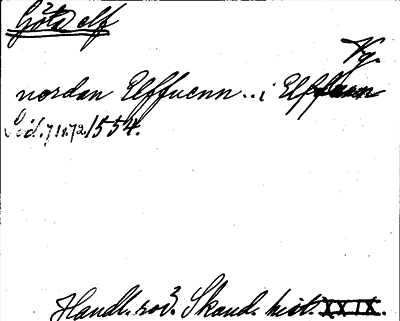 Göta elf
Vg.
nordan Elffuenn .. i Elffuen
1554.
Handl. rör. Skand. hist. XXIX.